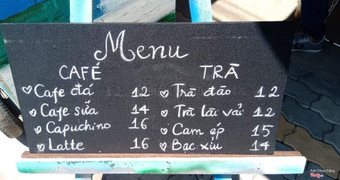 Menu
CAFÉ
Cafe đá 12
Cafe sữa 14
Capuchino 16
Latte 16
TRÀ
Trà đào 12
Trà lài vải 12
Cam ép 15
Bạc xỉu 14